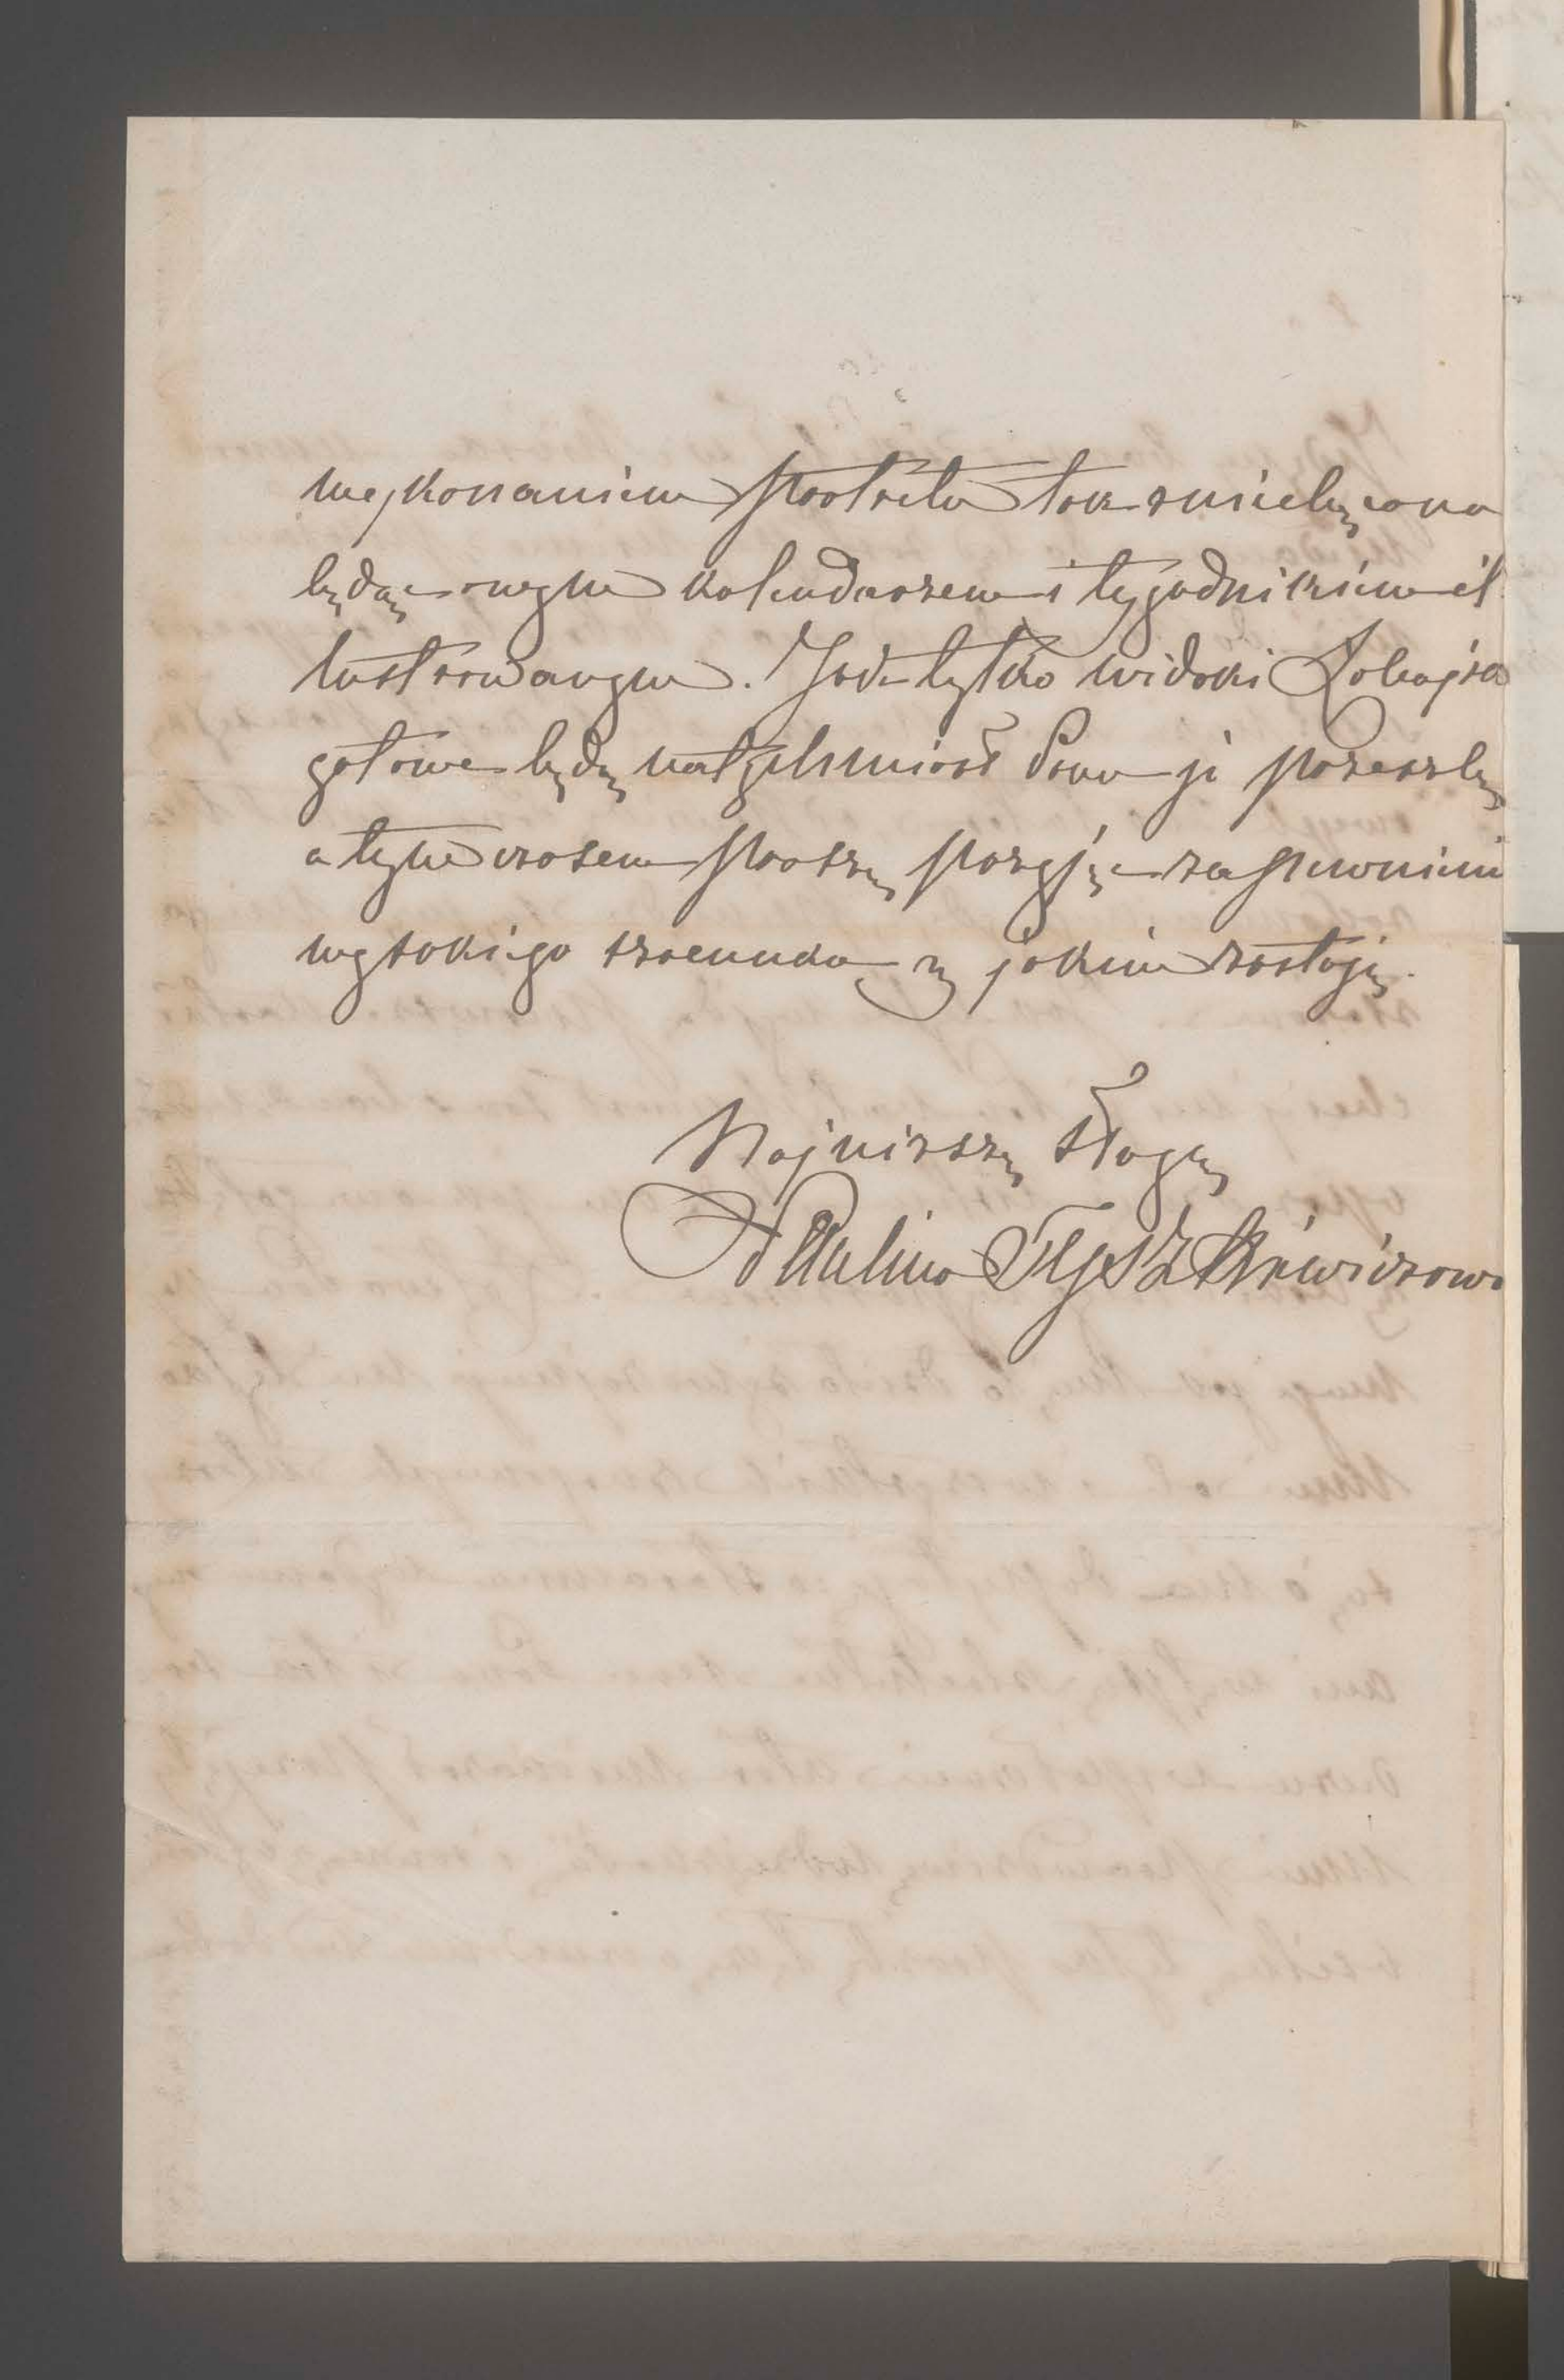 wykonaniem portretu tak zniechęcona
będąc owym kalendarzem i tygodnikiem il
lustrowanym. Jak tylko widoki Zohajsa
gotowe będą natychmiast Panu je przeszlę
a tymczasem proszę przyjąc zapewnienie
wysokiego szacunku z jakim zostaję.
Najniższą sługą
Paulina Tyszkiewiczowa